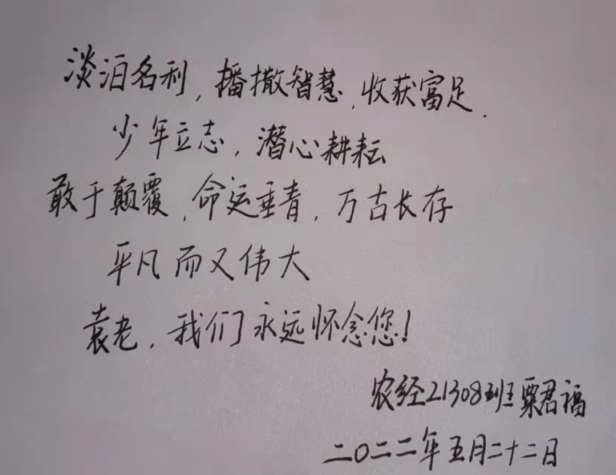 淡泊名利，播撒智慧，收获富足．
少年立志，潜心耕耘
敢于颠覆，命运垂青，万古长存
平凡而又伟大
袁老，我们永远怀念您！
农经21308班粟君福
二〇二二年五月二十二日